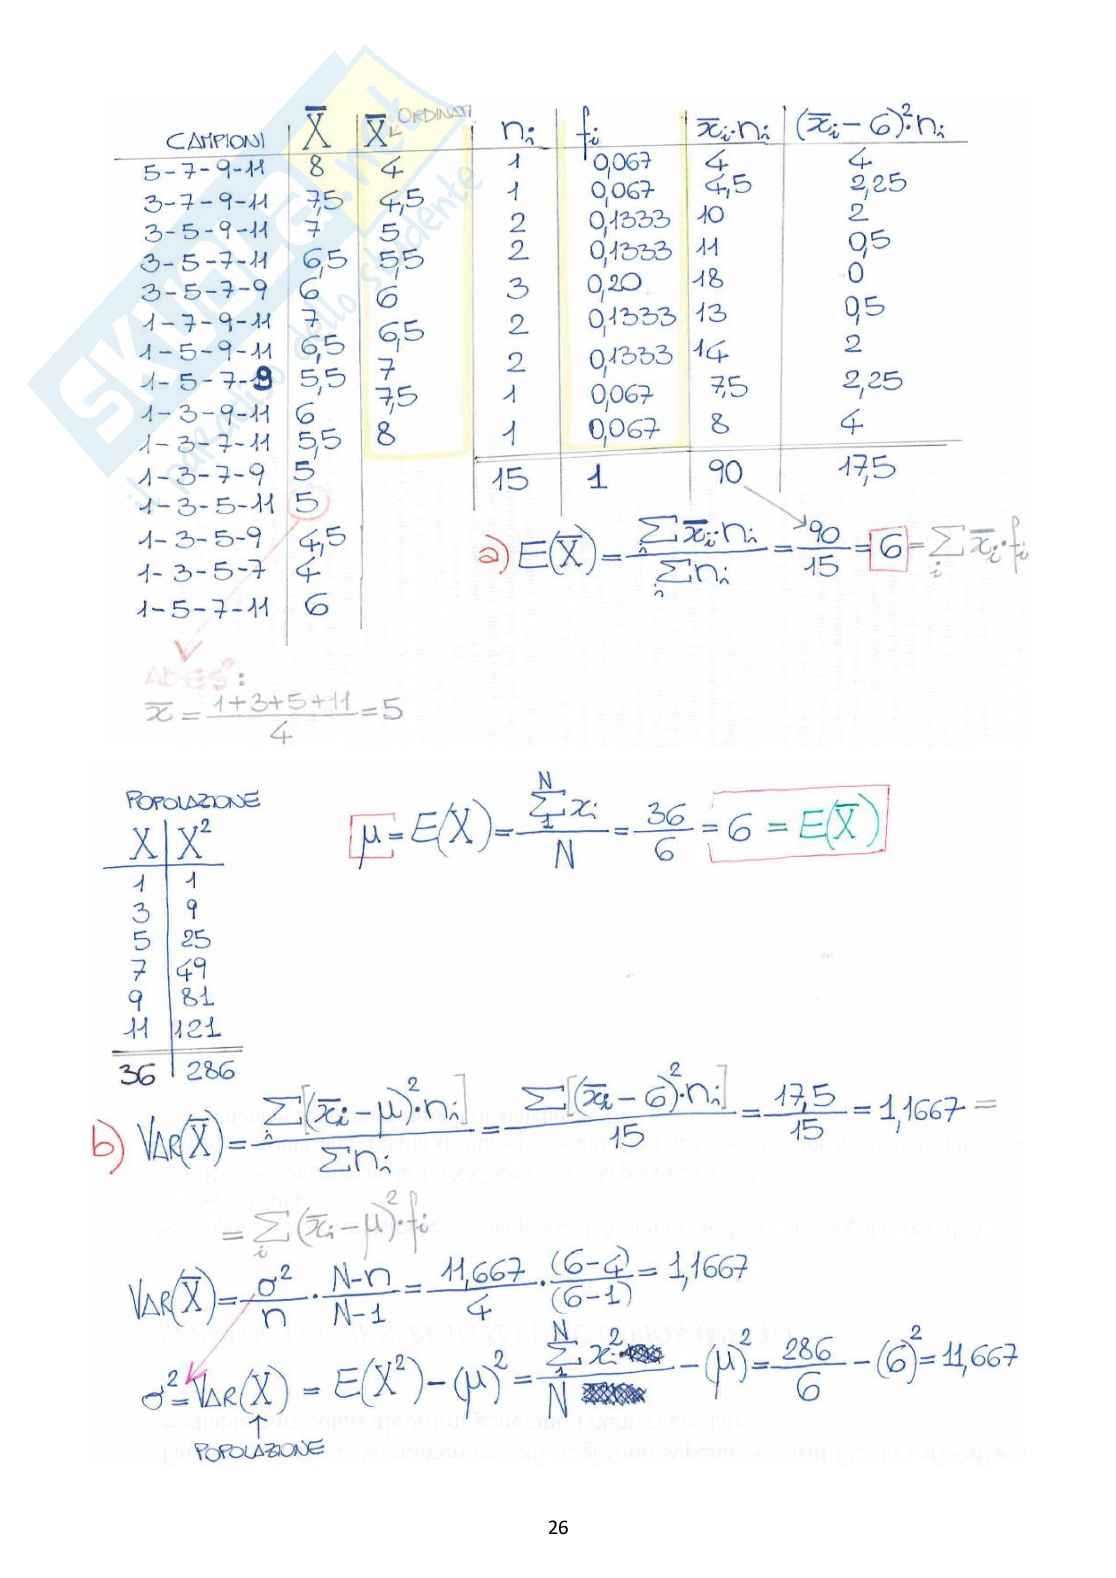 CAMPIONI | X̄ | X̄ ORDINATI | nᵢ | fᵢ | x̄ᵢ·nᵢ | (x̄ᵢ - 6)²·nᵢ
5-7-9-11 | 8 | 4 | 1 | 0,067 | 4 | 4
3-7-9-11 | 7,5 | 4,5 | 1 | 0,067 | 4,5 | 2,25
3-5-9-11 | 7 | 5 | 2 | 0,1333 | 10 | 2
3-5-7-11 | 6,5 | 5,5 | 2 | 0,1333 | 11 | 0,5
3-5-7-9 | 6 | 6 | 3 | 0,20 | 18 | 0
1-7-9-11 | 7 | 6,5 | 2 | 0,1333 | 13 | 0,5
1-5-9-11 | 6,5 | 7 | 2 | 0,1333 | 14 | 2
1-5-7-9 | 5,5 | 7,5 | 1 | 0,067 | 7,5 | 2,25
1-3-9-11 | 6 | 8 | 1 | 0,067 | 8 | 4
1-3-7-11 | 5,5
1-3-7-9 | 5 | 15 | 1 | 90 | 17,5
1-3-5-11 | 5
1-3-5-9 | 4,5
1-3-5-7 | 4
1-5-7-11 | 6
a) E(X̄) = Σᵢ x̄ᵢ·nᵢ / Σᵢ nᵢ = 90/15 = 6 = Σᵢ x̄ᵢ·fᵢ
x̄ = (1+3+5+11)/4 = 5
POPOLAZIONE
X | X²
1 | 1
3 | 9
5 | 25
7 | 49
9 | 81
11 | 121
36 | 286
μ = E(X) = Σ₁ᴺ xᵢ / N = 36/6 = 6 = E(X̄)
b) VAR(X̄) = Σᵢ[(x̄ᵢ - μ)²·nᵢ] / Σnᵢ = Σ[(x̄ᵢ - 6)²·nᵢ] / 15 = 17,5/15 = 1,1667 =
= Σᵢ (x̄ᵢ - μ)²·fᵢ
VAR(X̄) = σ²/n · (N-n)/(N-1) = 11,667/4 · (6-4)/(6-1) = 1,1667
σ² = VAR(X) = E(X²) - (μ)² = Σ₁ᴺ xᵢ² / N - (μ)² = 286/6 - (6)² = 11,667
POPOLAZIONE
SKUOLA.net
il paradiso dello studente
26